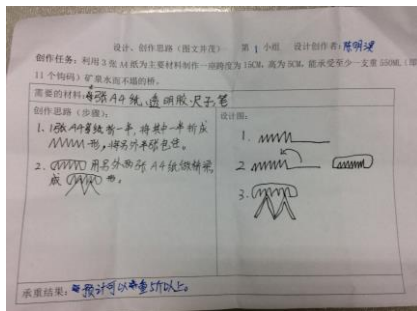 设计、创作思路（图文并茂） 第 1 小组 设计创作者：陈明洪
创作任务：利用3张A4纸为主要材料制作一座跨度为15CM，高为5CM，能承受至少一支重550ML（即
11个钩码）矿泉水而不塌的桥。
需要的材料：3张A4纸、透明胶、尺子、笔
创作思路（步骤）：
1、1张A4纸折一半，将其中一半折成
形，将另外半张包住。
2、用另外两张A4纸做桥梁，
成 形。
设计图：
1.
2
3.
承重结果：预计可以承重5斤以上。